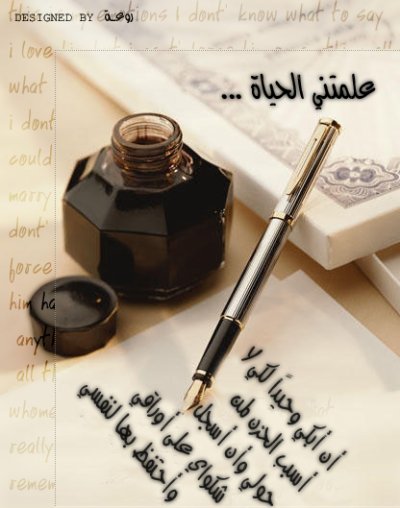 DESIGNED BY زوعة
this my emotions I dont' know what to say
i love him
what
i dont
could
marry
dont'
force
him ha
anyth
all th
whom
really
remem
علمتني الحياة ...
أن أبكي وحيداً لكي لا
أسبب الحزن لمن
حولي وأن أسجل
شكواي على أوراقي
وأحتفظ بها لنفسي